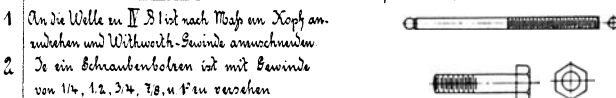 1 An die Welle zu IV B1 ist nach Maß ein Kopf an-
zudrehen und Withworth-Gewinde anzuschneiden.
2 Je ein Schraubenbolzen ist mit Gewinde
von 1/4, 1.2, 3/4, 7/8, u. 1" zu versehen